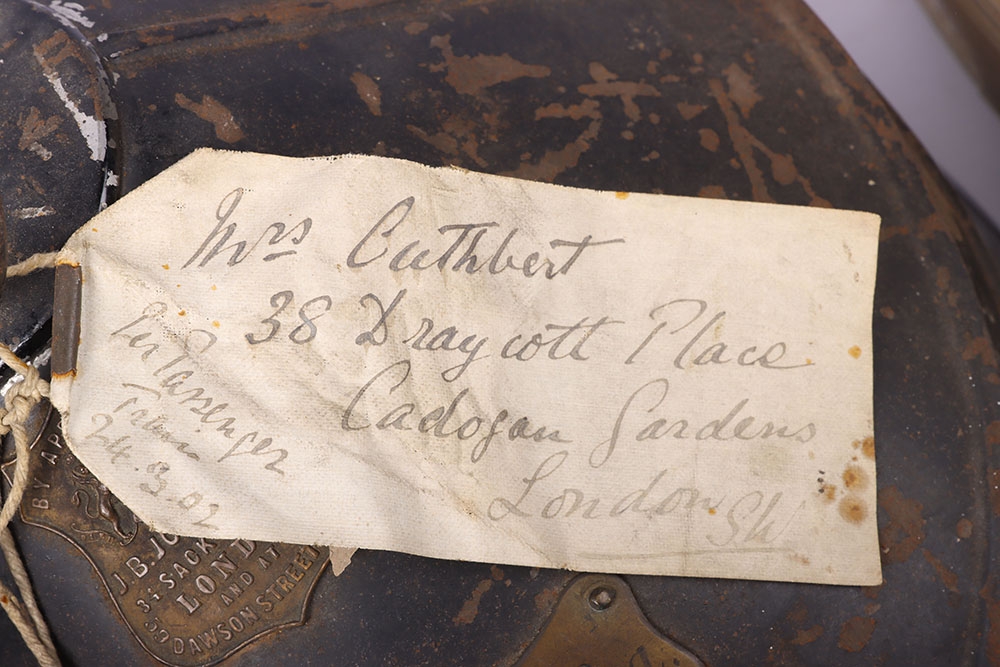 Mrs Cuthbert
38 Draycott Place
Cadogan Gardens
London SW
Per Passenger
Train
24.3.02
BY AP
J B JO
3½ SACK
LOND
AND AT
52 DAWSON STREET